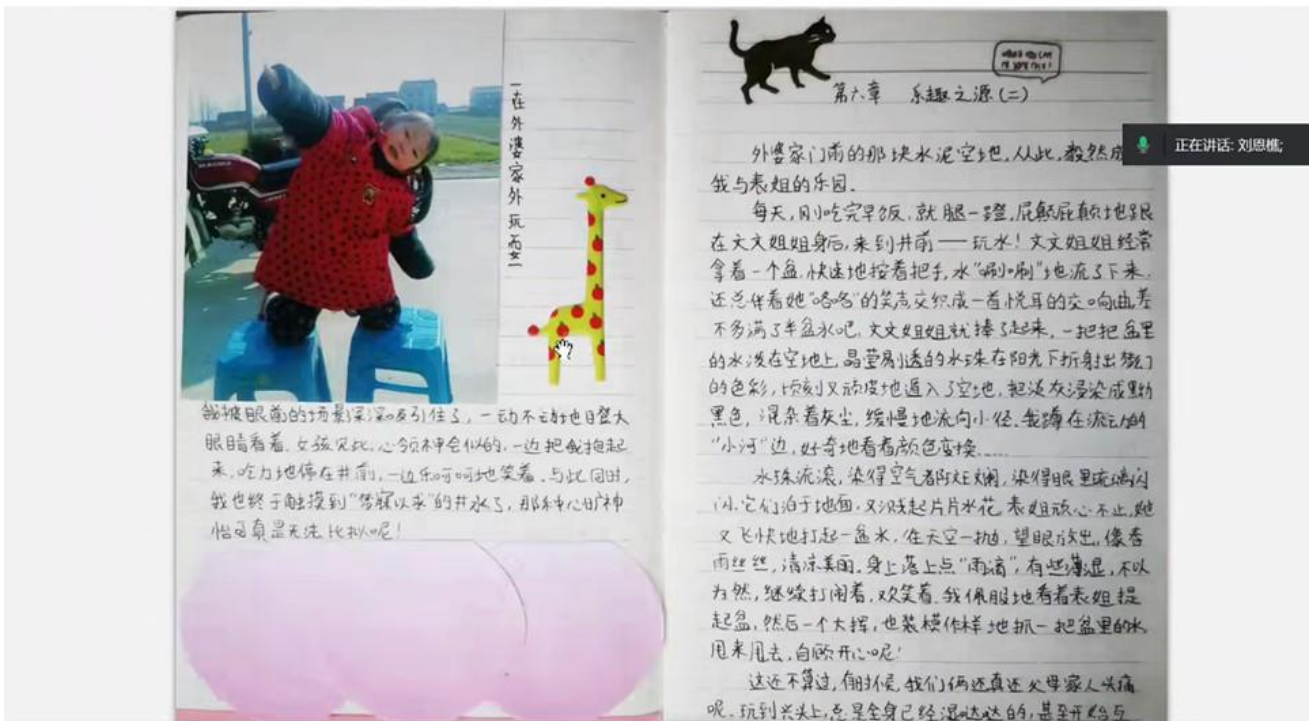 一在外婆家外玩耍一
我被眼前的场景深深吸引住了，一动不动地瞪大
眼睛看着。女孩见此，心领神会似的，一边把我抱起
来，吃力地停在井前，一边乐呵呵地笑着。与此同时，
我也终于触摸到“梦寐以求”的井水了，那种心旷神
怡可真是无法比拟呢！
第六章 乐趣之源（二）
外婆家门前的那块水泥空地，从此，毅然成
我与表姐的乐园。
每天，刚吃完早饭，就腿一蹬，屁颠屁颠地跟
在文文姐姐身后，来到井前——玩水！文文姐姐经常
拿着一个盆，快速地按着把手，水“唰唰”地流了下来，
还总伴着她“咯咯”的笑声交织成一首悦耳的交响曲。差
不多满了半盆水吧，文文姐姐就捧了起来，一把把盆里
的水泼在空地上，晶莹剔透的水珠在阳光下折射出
的色彩，顷刻又顽皮地遁入了空地，把淡灰浸染成黝
黑色，混杂着灰尘，缓慢地流向小径。我蹲在流动的
“小河”边，好奇地看着颜色变换……
水珠流滚，染得空气都灿烂，染得眼里琉璃闪
闪。它们泊于地面，又溅起片片水花。表姐顽心不止，她
又飞快地打起一盆水，在天空一抛，望眼放出，像春
雨丝丝，清凉美丽。身上落上点“雨滴”，有些薄湿，不以
为然，继续打闹着，欢笑着。我佩服地看着表姐提
起盆，然后一个大挥，也装模作样地抓一把盆里的水
甩来甩去，自顾开心呢！
这还不算过，有时候，我们俩还真还父母家人头痛
呢。玩到兴头上，总是全身已经湿哒哒的，甚至开始与
正在讲话: 刘恩樵;